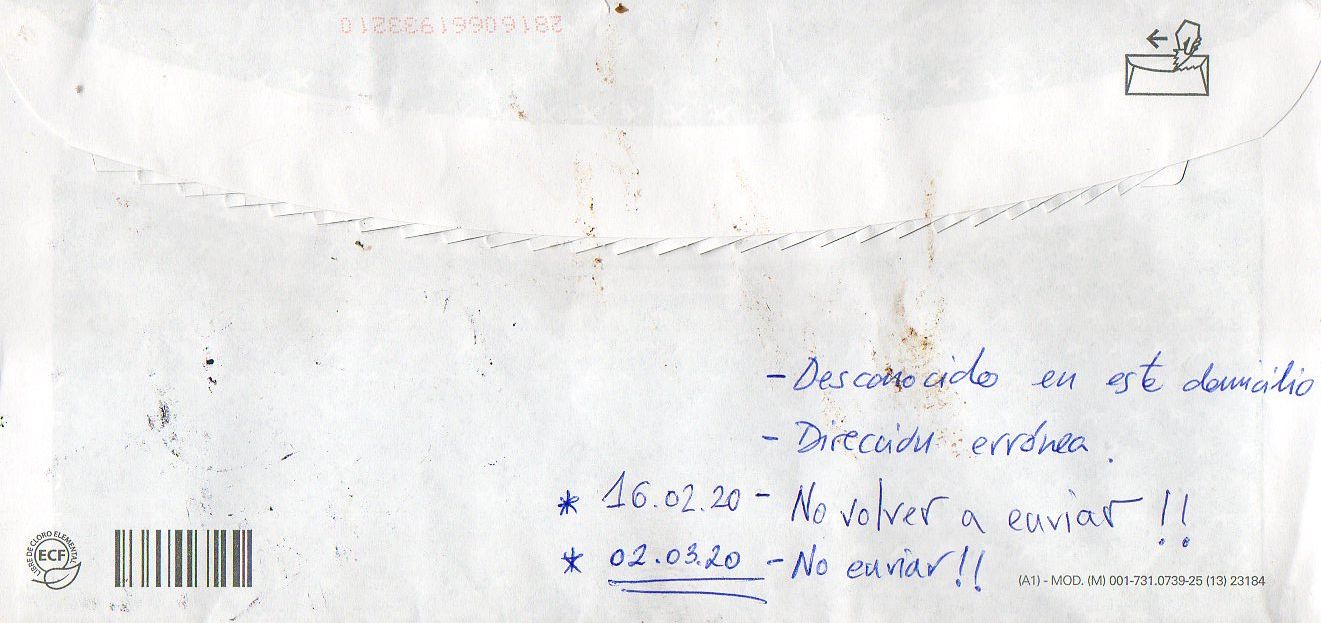 28160661933210
- Desconocido en este domicilio
- Dirección errónea.
* 16.02.20 - No volver a enviar !!
* 02.03.20 - No enviar !!
LIBRE DE CLORO ELEMENTAL
ECF
(A1) - MOD. (M) 001-731.0739-25 (13) 23184